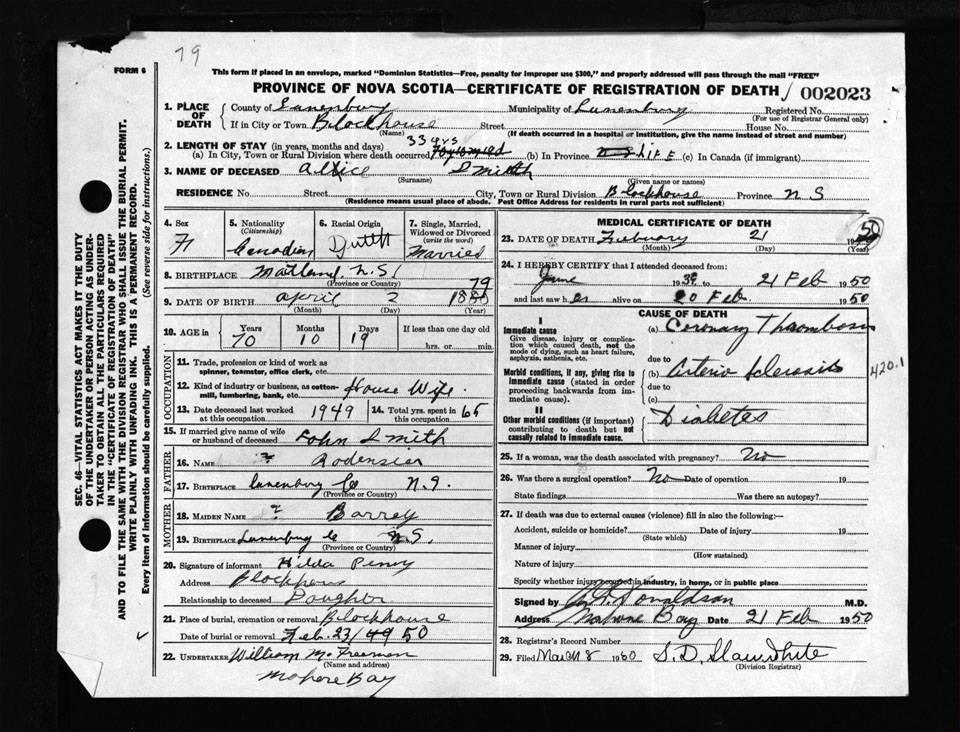 79
FORM 6
This form if placed in an envelope, marked "Dominion Statistics—Free, penalty for improper use $300," and properly addressed will pass through the mail "FREE"
PROVINCE OF NOVA SCOTIA—CERTIFICATE OF REGISTRATION OF DEATH / 002023
SEC. 46—VITAL STATISTICS ACT MAKES IT THE DUTY
OF THE UNDERTAKER OR PERSON ACTING AS UNDER-
TAKER TO OBTAIN ALL THE PARTICULARS REQUIRED
IN THE "CERTIFICATE OF REGISTRATION OF DEATH"
AND TO FILE THE SAME WITH THE DIVISION REGISTRAR WHO SHALL ISSUE THE BURIAL PERMIT.
WRITE PLAINLY WITH UNFADING INK. THIS IS A PERMANENT RECORD.
Every item of information should be carefully supplied. (See reverse side for instructions.)
1. PLACE OF DEATH
County of Lunenburg Municipality of Lunenburg Registered No.
(For use of Registrar General only)
If in City or Town Blockhouse Street House No.
(Name) (If death occurred in a hospital or institution, give the name instead of street and number)
2. LENGTH OF STAY (in years, months and days) 33 yrs
(a) In City, Town or Rural Division where death occurred (b) In Province Life (c) In Canada (if immigrant)
3. NAME OF DECEASED Alice Smith
(Surname) (Given name or names)
RESIDENCE No. Street City, Town or Rural Division Blockhouse Province N S
(Residence means usual place of abode. Post Office Address for residents in rural parts not sufficient)
4. Sex F
5. Nationality (Citizenship) Canadian
6. Racial Origin Dutch
7. Single, Married, Widowed or Divorced (write the word) Married
8. BIRTHPLACE Maitland, N.S.
(Province or Country)
9. DATE OF BIRTH April 2 1879
(Month) (Day) (Year)
10. AGE in Years Months Days If less than one day old
70 10 19 hrs. or min.
OCCUPATION
11. Trade, profession or kind of work as spinner, teamster, office clerk, etc.
12. Kind of industry or business, as cotton-mill, lumbering, bank, etc. House Wife
13. Date deceased last worked at this occupation 1949 14. Total yrs. spent in this occupation 65
15. If married give name of wife or husband of deceased John Smith
FATHER
16. NAME ?
17. BIRTHPLACE Lunenburg Co N.S.
(Province or Country)
MOTHER
18. MAIDEN NAME ?
19. BIRTHPLACE Lunenburg Co N.S.
(Province or Country)
20. Signature of informant Hilda
Address Blockhouse
Relationship to deceased Daughter
21. Place of burial, cremation or removal Blockhouse
Date of burial or removal Feb. 23/49 50
22. UNDERTAKER William M. Freeman
(Name and address)
Mahone Bay
MEDICAL CERTIFICATE OF DEATH
23. DATE OF DEATH February 21 1950
(Month) (Day) (Year)
24. I HEREBY CERTIFY that I attended deceased from:
June 1939 to 21 Feb 1950
and last saw her alive on 20 Feb. 1950
CAUSE OF DEATH
I
Immediate cause
Give disease, injury or complication which caused death, not the mode of dying, such as heart failure, asphyxia, asthenia, etc.
(a) Coronary Thrombosis
due to
Morbid conditions, if any, giving rise to immediate cause (stated in order proceeding backwards from immediate cause).
(b) Arterio Sclerosis 420.1
due to
(c)
II
Other morbid conditions (if important) contributing to death but not causally related to immediate cause.
Diabetes
25. If a woman, was the death associated with pregnancy? No
26. Was there a surgical operation? No Date of operation 19
State findings Was there an autopsy?
27. If death was due to external causes (violence) fill in also the following:—
Accident, suicide or homicide? Date of injury 19
(State which)
Manner of injury
(How sustained)
Nature of injury
Specify whether injury occurred in industry, in home, or in public place
Signed by Donaldson M.D.
Address Mahone Bay Date 21 Feb 1950
28. Registrar's Record Number
29. Filed March 8 1950 S. D. Slauwhite
(Division Registrar)